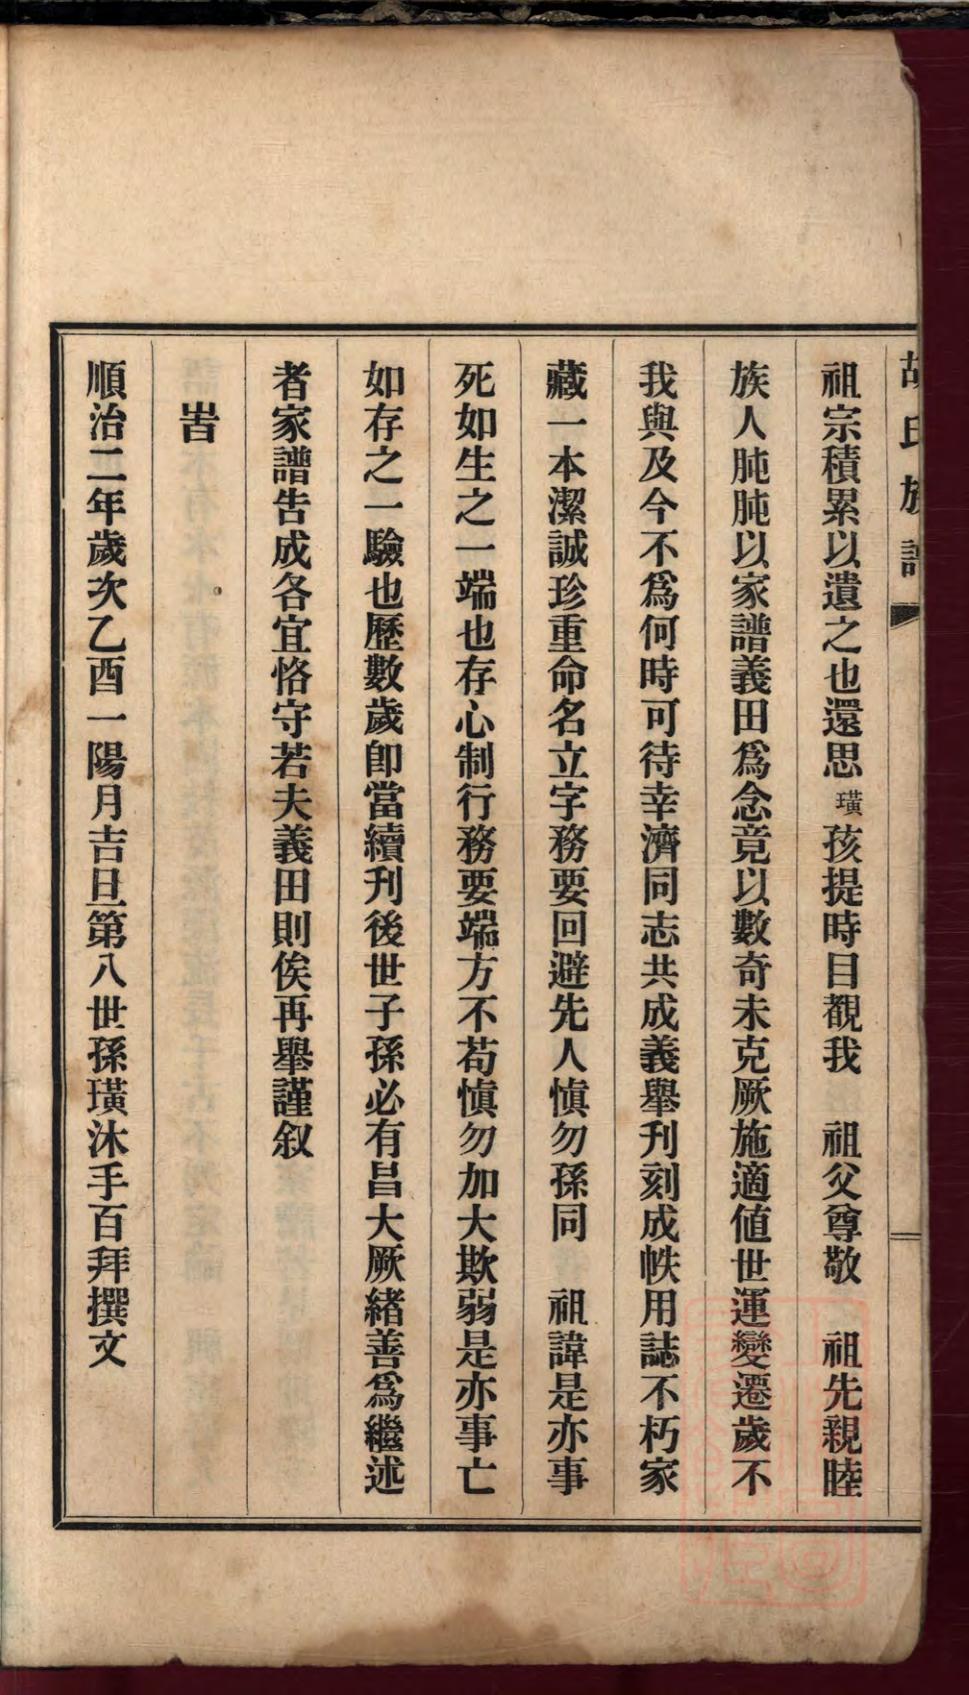 胡氏族譜
祖宗積累以遺之也還思璜孩提時目覩我　祖父尊敬　祖先親睦
族人肫肫以家譜義田爲念竟以數奇未克厥施適値世運變遷歲不
我與及今不爲何時可待幸濟同志共成義舉刋刻成帙用誌不朽家
藏一本潔誠珍重命名立字務要回避先人愼勿孫同　祖諱是亦事
死如生之一端也存心制行務要端方不苟愼勿加大欺弱是亦事亡
如存之一驗也歷數歲卽當續刋後世子孫必有昌大厥緖善爲繼述
者家譜告成各宜恪守若夫義田則俟再舉謹叙
旹
順治二年歲次乙酉一陽月吉旦第八世孫璜沐手百拜撰文